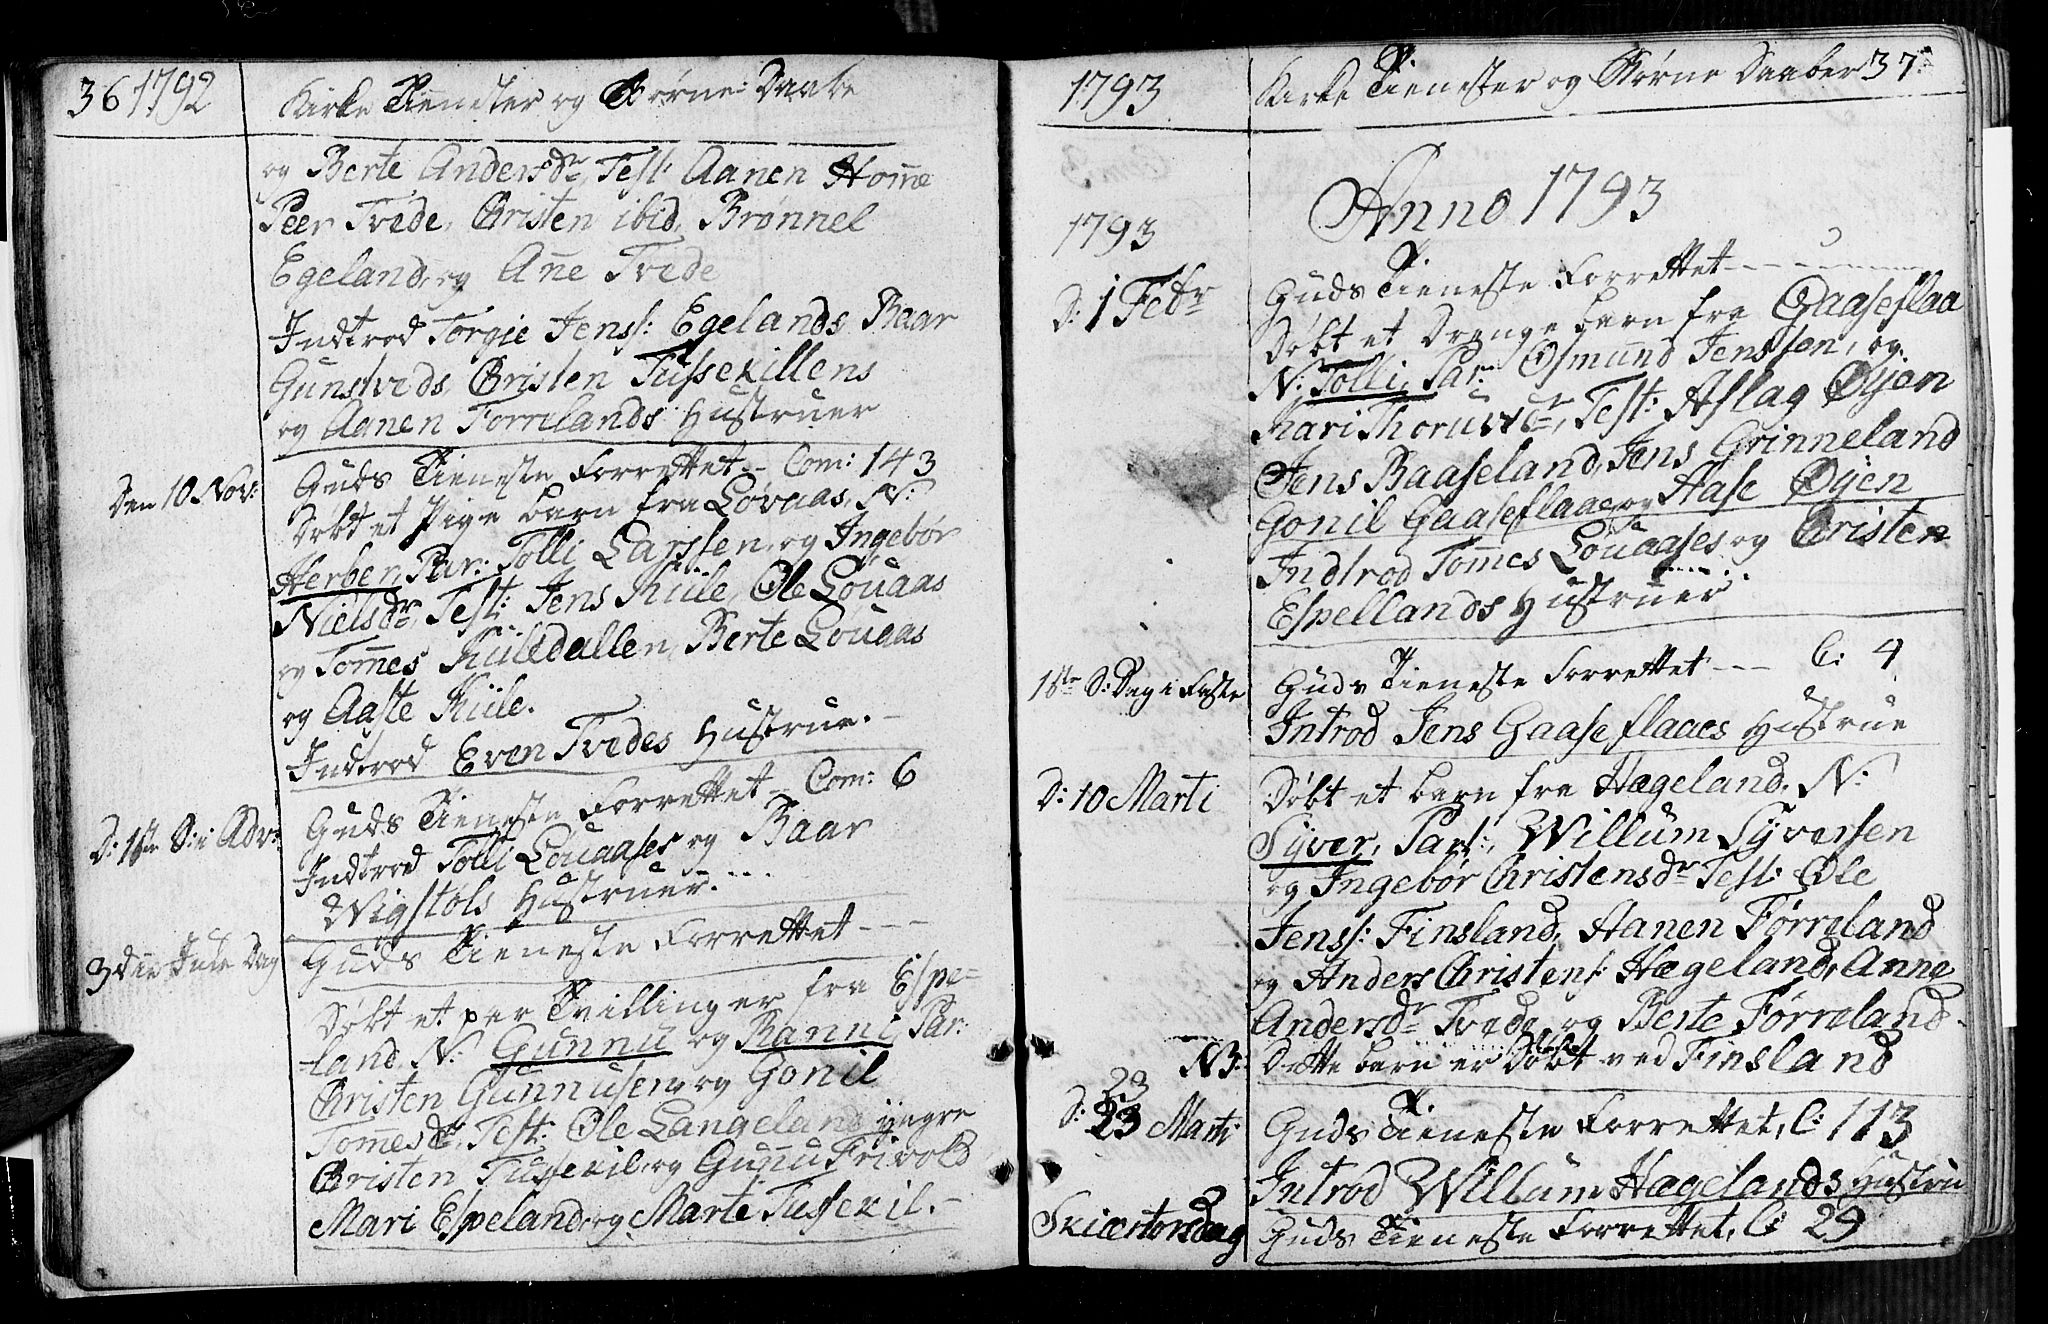 36 1792 Kirke Tienester og Børne Daabe
og Berte Andersdr, Test: Aanen Homne
Peer Tvede, Christen ibid, Brønnel
Egeland, og Ane Tvede
Indtrod Torgie Jenss: Egelands Baar
Gunstveds Christen Tussekillens
og Aanen Forrelands Hustruer
Den 10 Nov: Guds Tieneste Forrettet - Com: 143
Døbt et Pige barn fra Løvaas, N:
Herber, Par: Tolli Larssen, og Ingebør
Nielsdr, Test: Jens Kiile, Ole Løuaas
og Tomes Kuiledallen, Berte Løuaas
og Aaste Kiile.
Indtrod Even Tvedes Hustrue. -
D: 1ste S: i Adv: Guds Tieneste Forrettet - Com: 6
Indtrod Tolli Løuaases og Baar
Wigstøls Hustruer....
3die Jule Dag Guds Tieneste Forrettet --
Døbt et per Tvillinger fra Espe-
land, N: Gunnu og Ranni, Par:
Christen Gunnusen, og Gonil
Tomesdr, Test: Ole Langeland yngre
Christen Tussekil, og Gunnu Frivold
Mari Espeland, og Marte Tussekil. -
1793 Kirke Tienester og Børne Daaber 37
Anno 1793
1793
D: 1 Febr Guds Tieneste Forrettet
Døbt et Drenge barn fra Gaaseflaa
N: Tolli, Par: Osmund Jenssen, og
Kari Test: Aslag Øyen
Jens Baaseland, Jens Grinneland
Gonil Gaaseflaae og Aase Øyen
Indtrod Tomes Løuaases og Christen
Espellands Hustruer
1ste S: Dag i Faste Guds Tieneste Forrettet -- C: 4
Introd Jens Gaaseflaaes Hustrue
D: 10 Marti Døbt et barn fra Hægeland, N:
Syver, Par:, Willum Syversen
og Ingebør Christensdr Test: Ole
Jenss: Finsland, Aanen Førreland
og Anders Christens: Hægeland, Anne
Andersdr Tvede, og Berte Førreland
NB: Dette barn er Døbt ved Finsland
23
D: 23 Marti Guds Tieneste Forrettet, C: 113
Introd Willum Hægelands Hustru
Skiærtorsdag Guds Tieneste Forrettet, C: 29